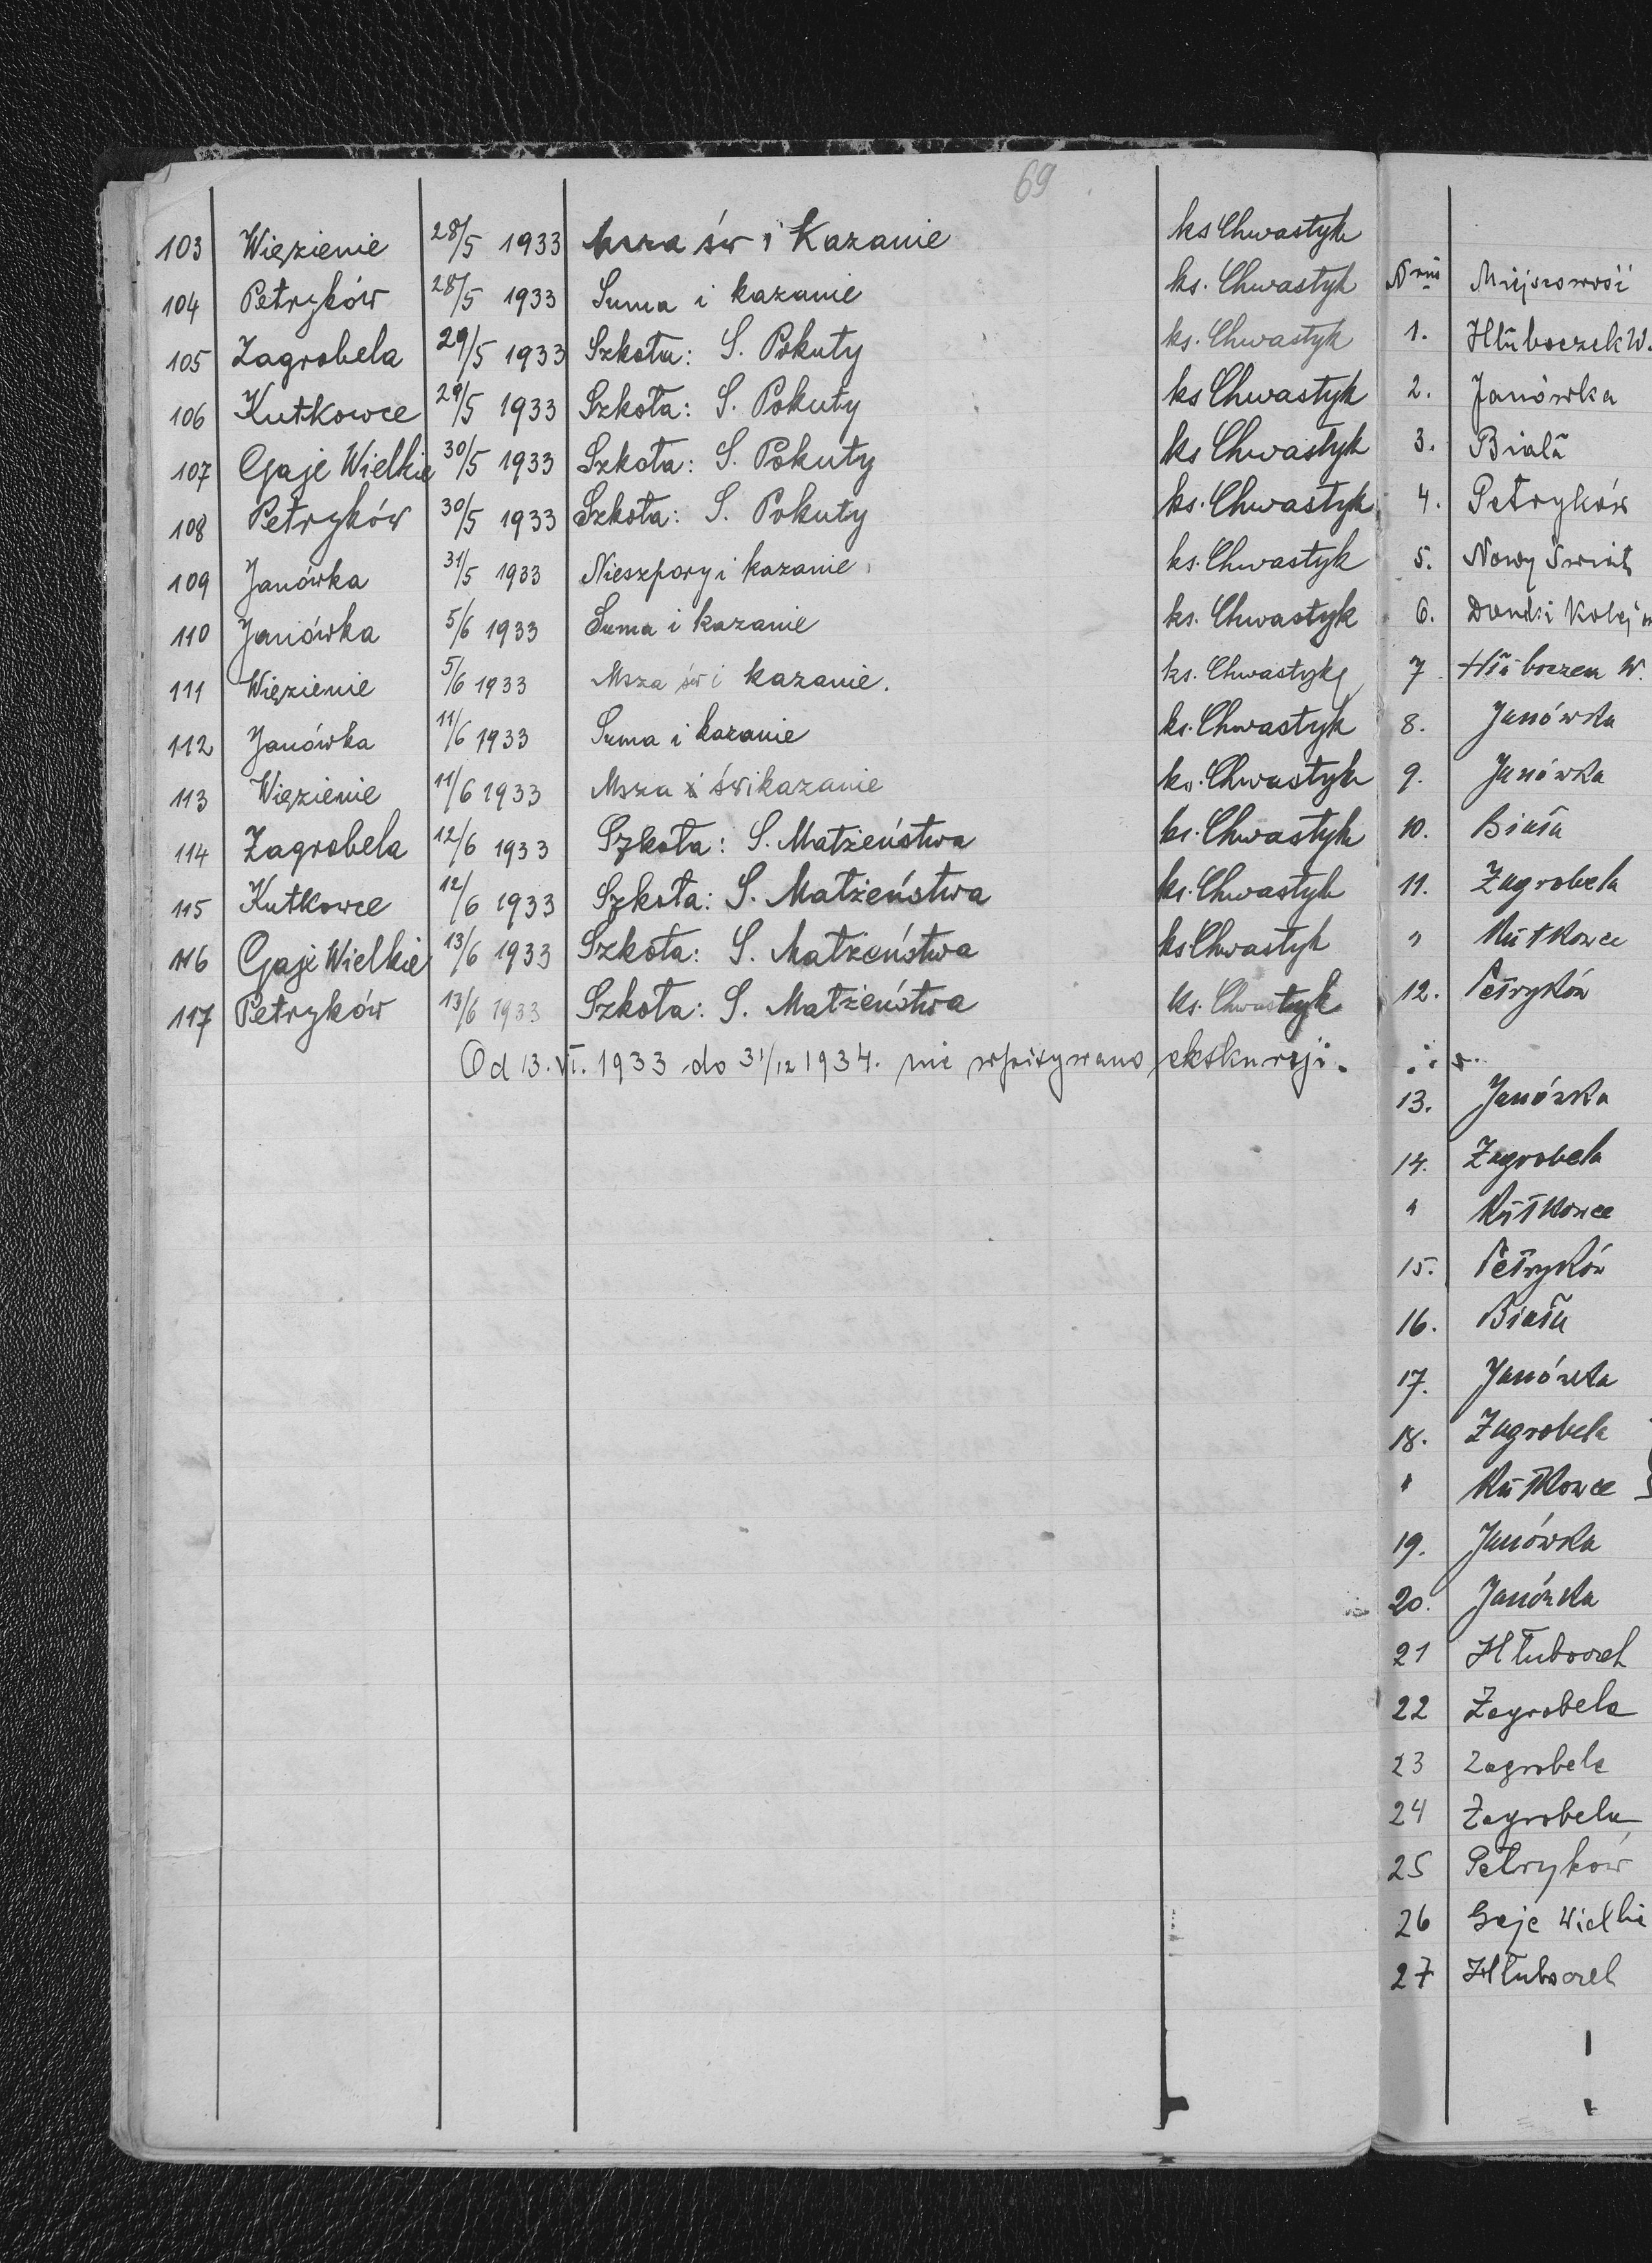 69
103 Więzienie 28/5 1933 Msza św i Kazanie ks Chwastyk
104 Petryków 28/5 1933 Suma i kazanie ks. Chwastyk
105 Zagrobela 29/5 1933 Szkoła: S. Pokuty ks. Chwastyk
106 Kutkowce 29/5 1933 Szkoła: S. Pokuty ks Chwastyk
107 Gaje Wielkie 30/5 1933 Szkoła: S. Pokuty ks Chwastyk
108 Petryków 30/5 1933 Szkoła: S. Pokuty ks. Chwastyk
109 Janówka 31/5 1933 Nieszpory i kazanie ks. Chwastyk
110 Janówka 5/6 1933 Suma i kazanie ks. Chwastyk
111 Więzienie 5/6 1933 Msza św i kazanie. ks. Chwastyk
112 Janówka 11/6 1933 Suma i kazanie ks. Chwastyk
113 Więzienie 11/6 1933 Msza św i kazanie ks. Chwastyk
114 Zagrobela 12/6 1933 Szkoła: S. Małżeństwa ks. Chwastyk
115 Kutkowce 12/6 1933 Szkoła: S. Małżeństwa ks. Chwastyk
116 Gaje Wielkie 13/6 1933 Szkoła: S. Małżeństwa ks Chwastyk
117 Petryków 13/6 1933 Szkoła: S. Małżeństwa ks. Chwastyk
Od 13. VI. 1933 do 31/12 1934. nie wpisywano ekskursji.
Miejscowość
1. Hłuboczek W.
2. Janówka
3. Biała
4. Petryków
5. Nowy Świat
6. Domki
7. W.
8. Janówka
9. Janówka
10. Biała
11. Zagrobela
" Kutkowce
12. Petryków
13. Janówka
14. Zagrobela
" Kutkowce
15. Petryków
16. Biała
17. Janówka
18. Zagrobela
" Kutkowce
19. Janówka
20. Janówka
21 Hłuboczek
22 Zagrobela
23 Zagrobela
24 Zagrobela
25 Petryków
26 Gaje Wielki
27 Hłuboczek